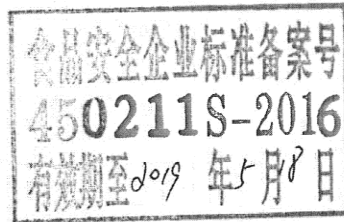 食品安全企业标准备案号
450211S-2016
有效期至2019 年5月18日